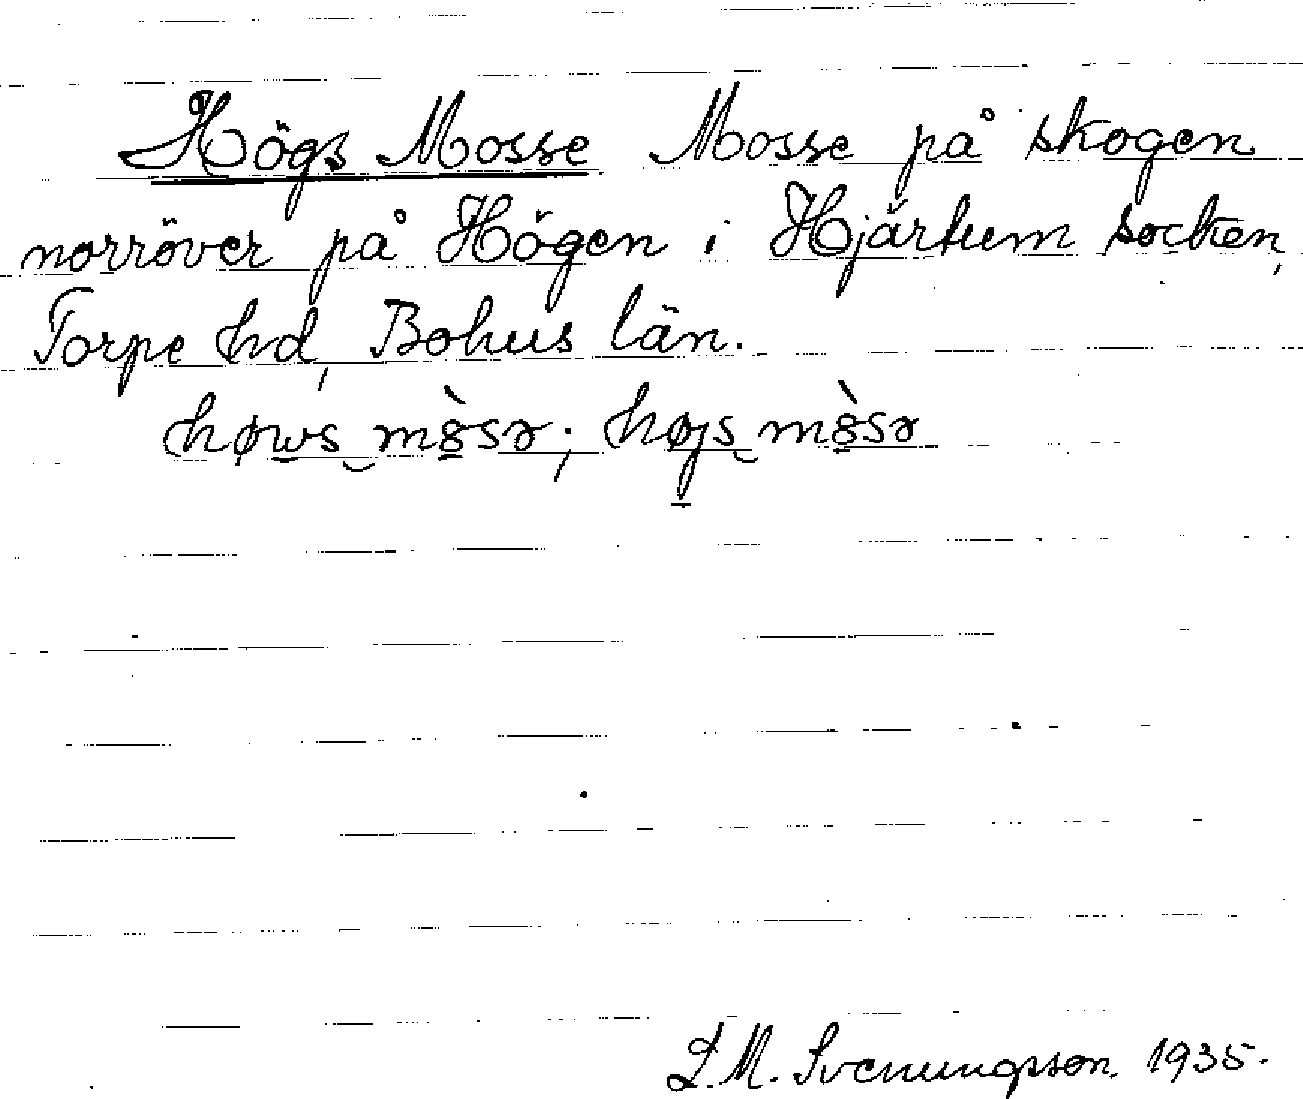 Högs Mosse Mosse på skogen
norröver på Högen i Hjärtum socken,
Torpe hd, Bohus län.
høws mòsə; højs mòsə
L.M. Svenungsson. 1935.